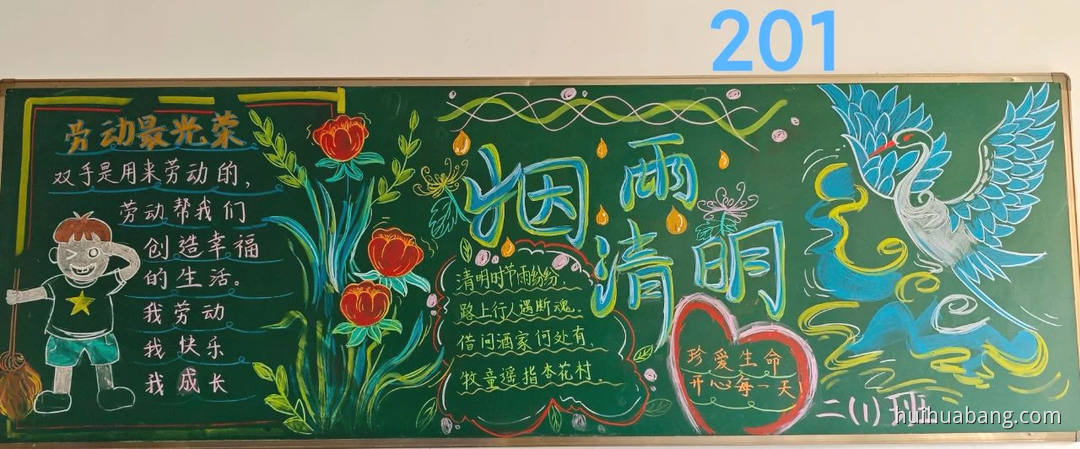 201
劳动最光荣
双手是用来劳动的，
劳动帮我们
创造幸福
的生活。
我劳动
我快乐
我成长
烟雨
清明
清明时节雨纷纷
路上行人遇断魂.
借问酒家何处有,
牧童遥指杏花村.
珍爱生命
开心每一天
二(1)班
huihuabang.com